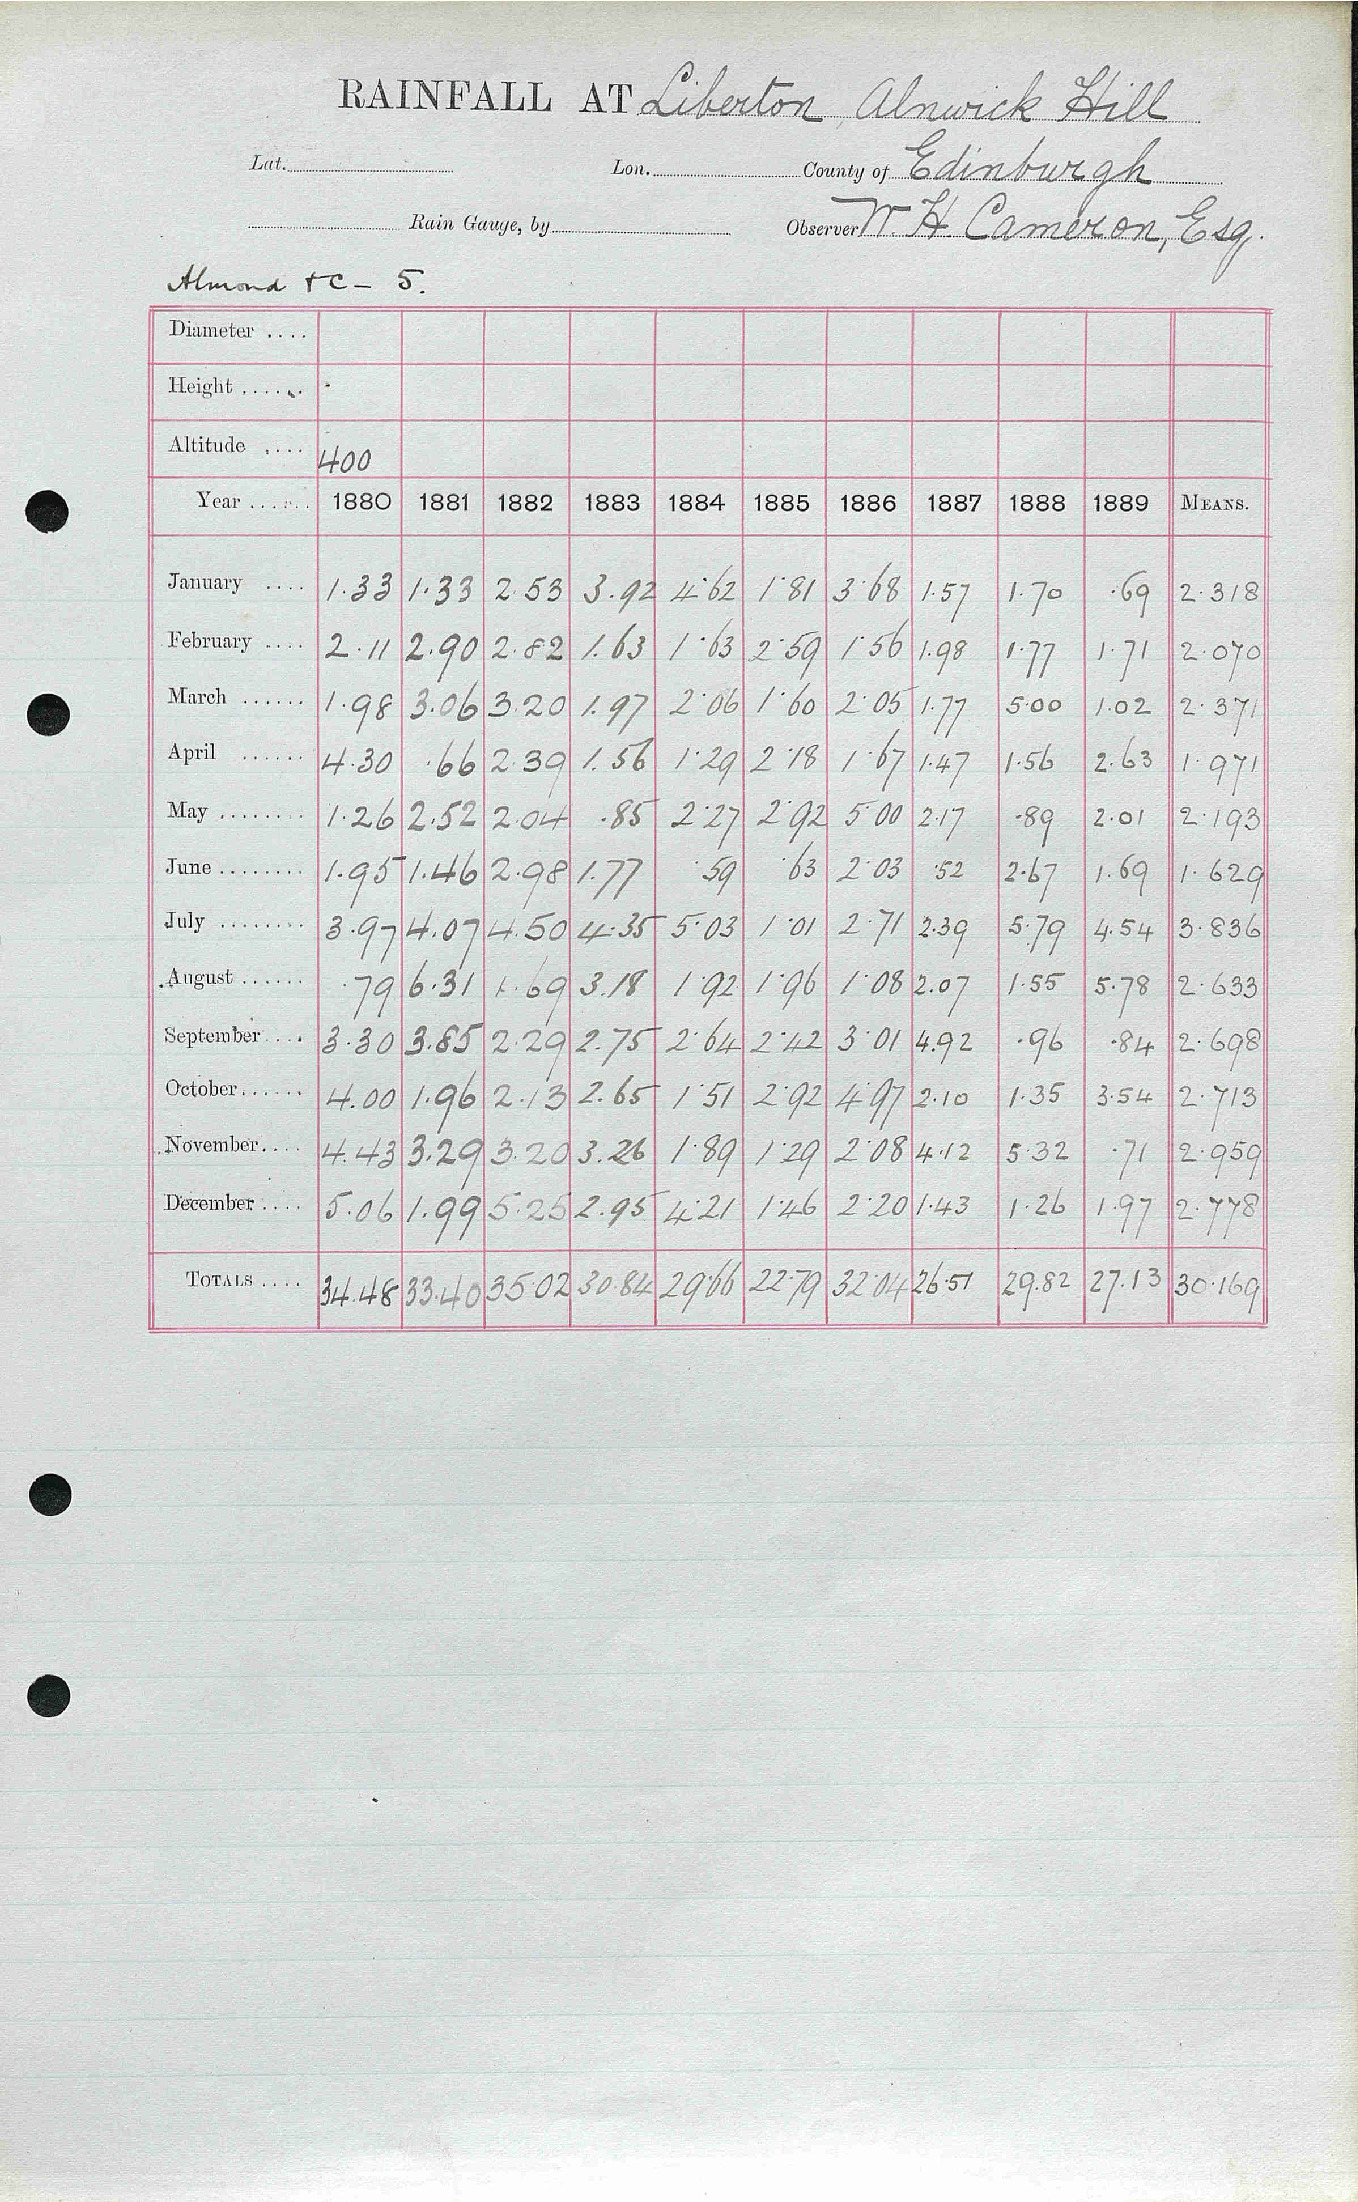 RAINFALL AT Liberton, Alnwick Hill
Lat. Lon. County of Edinburgh
Rain Gauge, by Observer W. H. Cameron, Esq.
Almond &c - 5.
Diameter ....
Height ......
Altitude .... 400
Year .... 1880 1881 1882 1883 1884 1885 1886 1887 1888 1889 MEANS.
January .... 1.33 1.33 2.53 3.92 4.62 1.81 3.68 1.57 1.70 .69 2.318
February .... 2.11 2.90 2.82 1.63 1.63 2.59 1.56 1.98 1.77 1.71 2.070
March ...... 1.98 3.06 3.20 1.97 2.06 1.60 2.05 1.77 5.00 1.02 2.371
April ...... 4.30 .66 2.39 1.56 1.29 2.18 1.67 1.47 1.56 2.63 1.971
May ........ 1.26 2.52 2.04 .85 2.27 2.92 5.00 2.17 .89 2.01 2.193
June ........ 1.95 1.46 2.98 1.77 .59 .63 2.03 .52 2.67 1.69 1.629
July ........ 3.97 4.07 4.50 4.35 5.03 1.01 2.71 2.39 5.79 4.54 3.836
August ...... .79 6.31 1.69 3.18 1.92 1.96 1.08 2.07 1.55 5.78 2.633
September .... 3.30 3.85 2.29 2.75 2.64 2.42 3.01 4.92 .96 .84 2.698
October ...... 4.00 1.96 2.13 2.65 1.51 2.92 4.97 2.10 1.35 3.54 2.713
November .... 4.43 3.29 3.20 3.26 1.89 1.29 2.08 4.12 5.32 .71 2.959
December .... 5.06 1.99 5.25 2.95 4.21 1.46 2.20 1.43 1.26 1.97 2.778
TOTALS .... 34.48 33.40 35.02 30.84 29.66 22.79 32.04 26.51 29.82 27.13 30.169